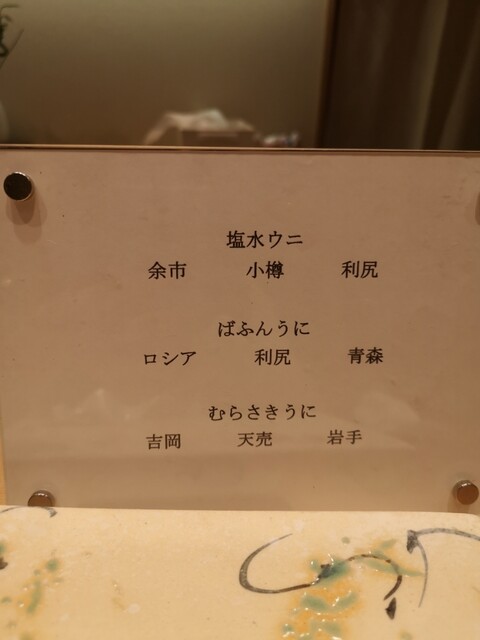 塩水ウニ
余市 小樽 利尻
ばふんうに
ロシア 利尻 青森
むらさきうに
吉岡 天売 岩手